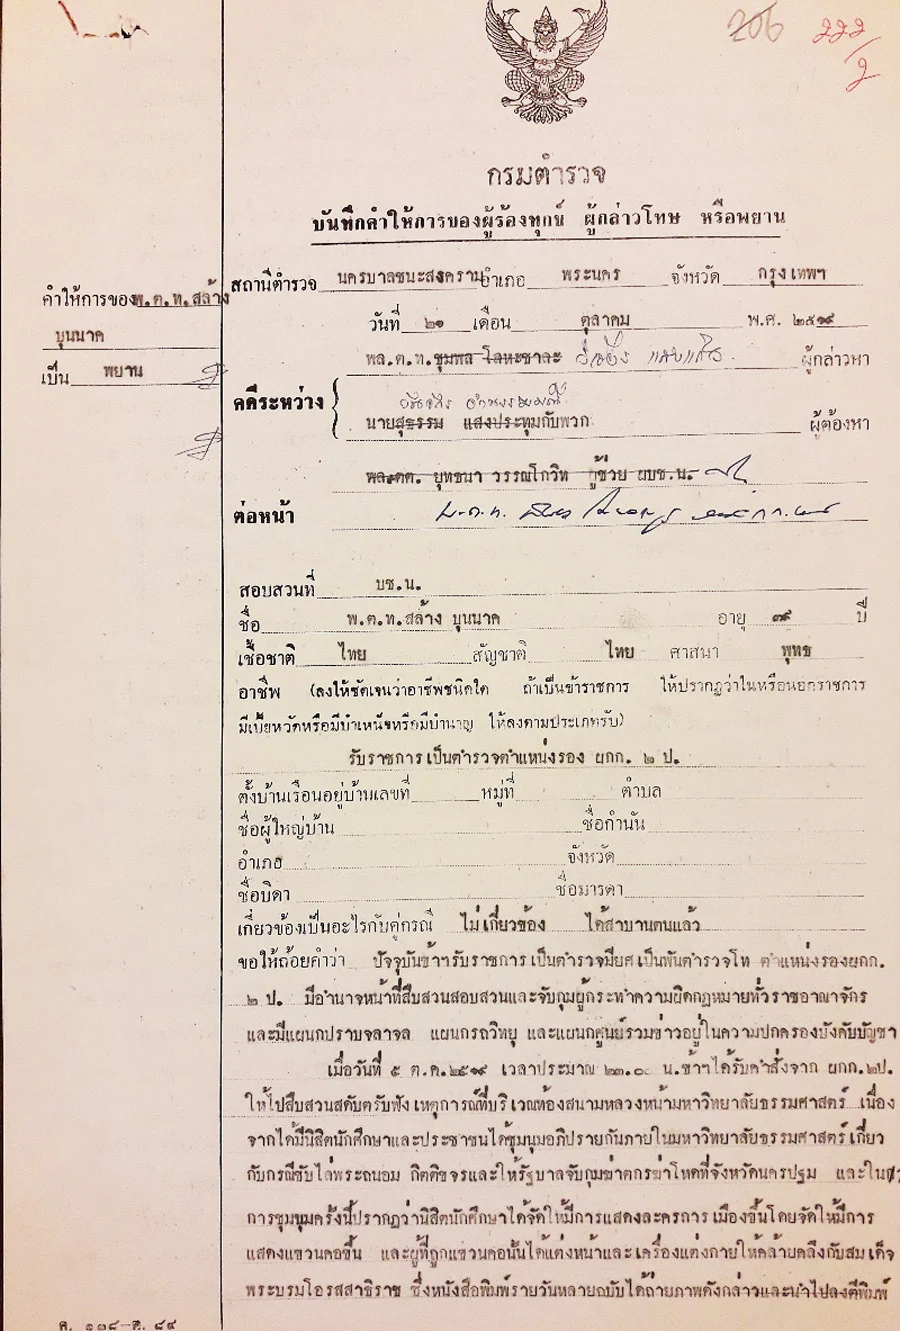 206
๒๒๒
/๒
กรมตำรวจ
บันทึกคำให้การของผู้ร้องทุกข์ ผู้กล่าวโทษ หรือพยาน
คำให้การของพ.ต.ท.สล้าง
บุนนาค
เป็น พยาน
สถานีตำรวจ นครบาลชนะสงคราม อำเภอ พระนคร จังหวัด กรุงเทพฯ
วันที่ ๒๑ เดือน ตุลาคม พ.ศ. ๒๕๑๙
พล.ต.ท.ชุมพล โลหะชาละ ผู้กล่าวหา
คดีระหว่าง
นายสุธรรม แสงประทุมกับพวก ผู้ต้องหา
พล.ตต. ยุทธนา วรรณโกวิท ผู้ช่วย ผบช.น.
ต่อหน้า
สอบสวนที่ บช.น.
ชื่อ พ.ต.ท.สล้าง บุนนาค อายุ ๓๙ ปี
เชื้อชาติ ไทย สัญชาติ ไทย ศาสนา พุทธ
อาชีพ (ลงให้ชัดเจนว่าอาชีพชนิดใด ถ้าเป็นข้าราชการ ให้ปรากฏว่าในหรือนอกราชการ
มีเบี้ยหวัดหรือมีบำเหน็จหรือมีบำนาญ ให้ลงตามประเภทรับ)
รับราชการเป็นตำรวจตำแหน่งรอง ผกก. ๒ ป.
ตั้งบ้านเรือนอยู่บ้านเลขที่ หมู่ที่ ตำบล
ชื่อผู้ใหญ่บ้าน ชื่อกำนัน
อำเภอ จังหวัด
ชื่อบิดา ชื่อมารดา
เกี่ยวข้องเป็นอะไรกับคู่กรณี ไม่เกี่ยวข้อง ได้สาบานตนแล้ว
ขอให้ถ้อยคำว่า ปัจจุบันข้าฯรับราชการเป็นตำรวจมียศเป็นพันตำรวจโท ตำแหน่งรองผกก.
๒ ป. มีอำนาจหน้าที่สืบสวนสอบสวนและจับกุมผู้กระทำความผิดกฎหมายทั่วราชอาณาจักร
และมีแผนกปราบจลาจล แผนกรถวิทยุ และแผนกศูนย์รวมข่าวอยู่ในความปกครองบังคับบัญชา
เมื่อวันที่ ๕ ต.ค.๒๕๑๙ เวลาประมาณ ๒๓.๐๐ น.ข้าฯได้รับคำสั่งจาก ผกก.๒ป.
ให้ไปสืบสวนสดับตรับฟัง เหตุการณ์ที่บริเวณท้องสนามหลวงหน้ามหาวิทยาลัยธรรมศาสตร์ เนื่อง
จากได้มีนิสิตนักศึกษาและประชาชนได้ชุมนุมอภิปรายกันภายในมหาวิทยาลัยธรรมศาสตร์ เกี่ยว
กับกรณีขับไล่พระถนอม กิตติขจรและให้รัฐบาลจับกุมฆ่าตกรฆ่าโหดที่จังหวัดนครปฐม และใน
การชุมนุมครั้งนี้ปรากฏว่านิสิตนักศึกษาได้จัดให้มีการแสดงละครการเมืองขึ้นโดยจัดให้มีการ
แสดงแขวนคอขึ้น และผู้ที่ถูกแขวนคอนั้นได้แต่งหน้าและเครื่องแต่งกายให้คล้ายคลึงกับสมเด็จ
พระบรมโอรสสาธิราช ซึ่งหนังสือพิมพ์รายวันหลายฉบับได้ถ่ายภาพดังกล่าวและนำไปลงตีพิมพ์
ต. ๑๒๘-ต. ๘๙